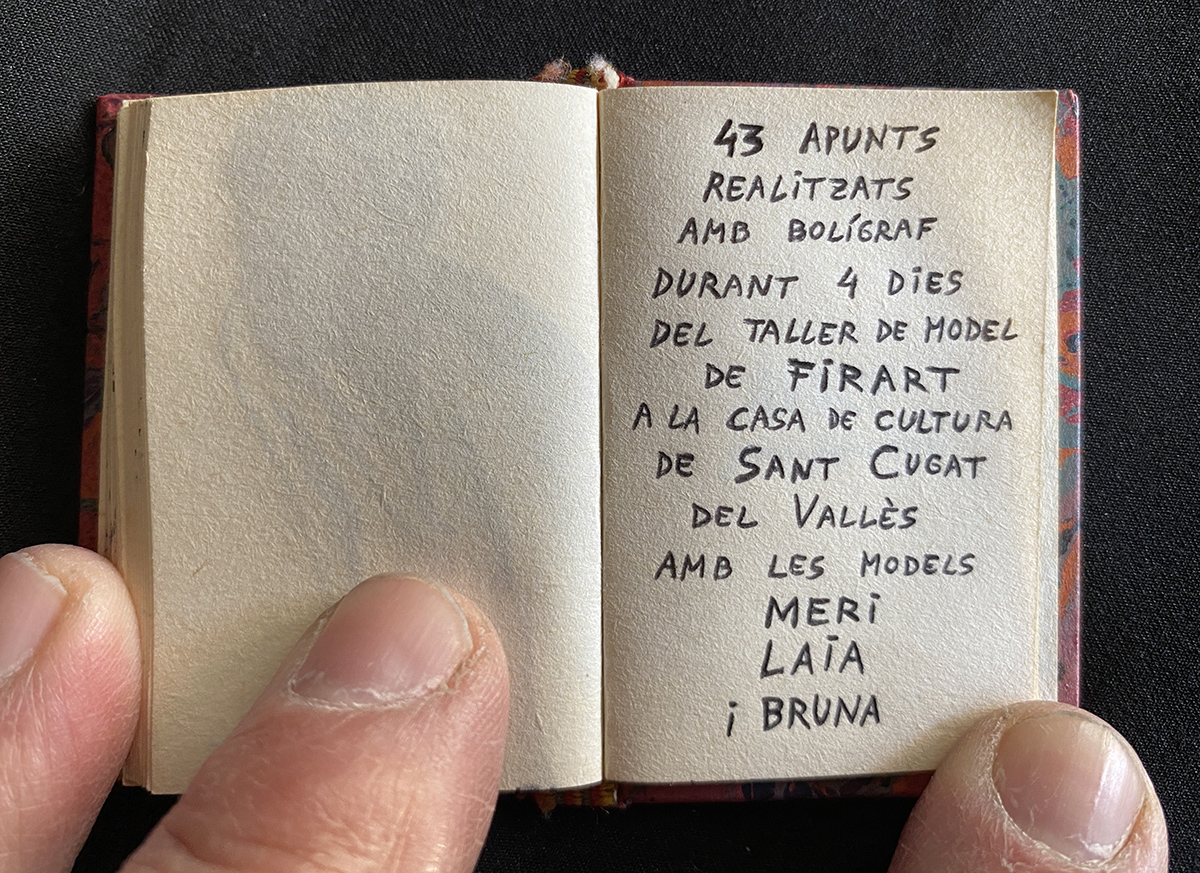 43 APUNTS
REALiTZATS
AMB BOLíGRAF
DURANT 4 DiES
DEL TALLER DE MODEL
DE FiRART
A LA CASA DE CULTURA
DE SANT CUGAT
DEL VALLÈS
AMB LES MODELS
MERi
LAiA
i BRUNA